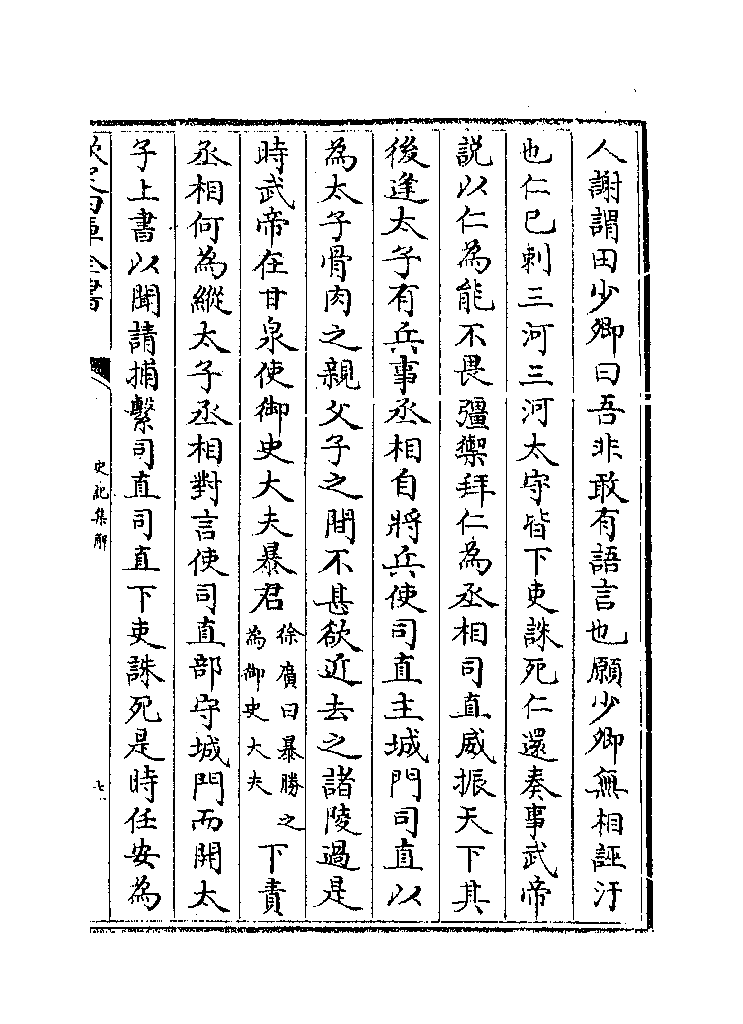 人謝謂田少卿曰吾非敢有語言也願少卿無相誣汙
也仁已刺三河三河太守皆下吏誅死仁還奏事武帝
説以仁為能不畏彊禦拜仁為丞相司直威振天下其
後逢太子有兵事丞相自將兵使司直主城門司直以
為太子骨肉之親父子之間不甚欲近去之諸陵過是
時武帝在甘泉使御史大夫暴君
徐廣曰暴勝之
為御史大夫
下責
丞相何為縱太子丞相對言使司直部守城門而開太
子上書以聞請捕繫司直司直下吏誅死是時任安為
欽定四庫全書
史記集解
七